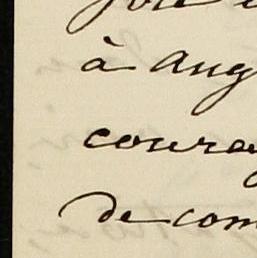 à Aug
coura
de com